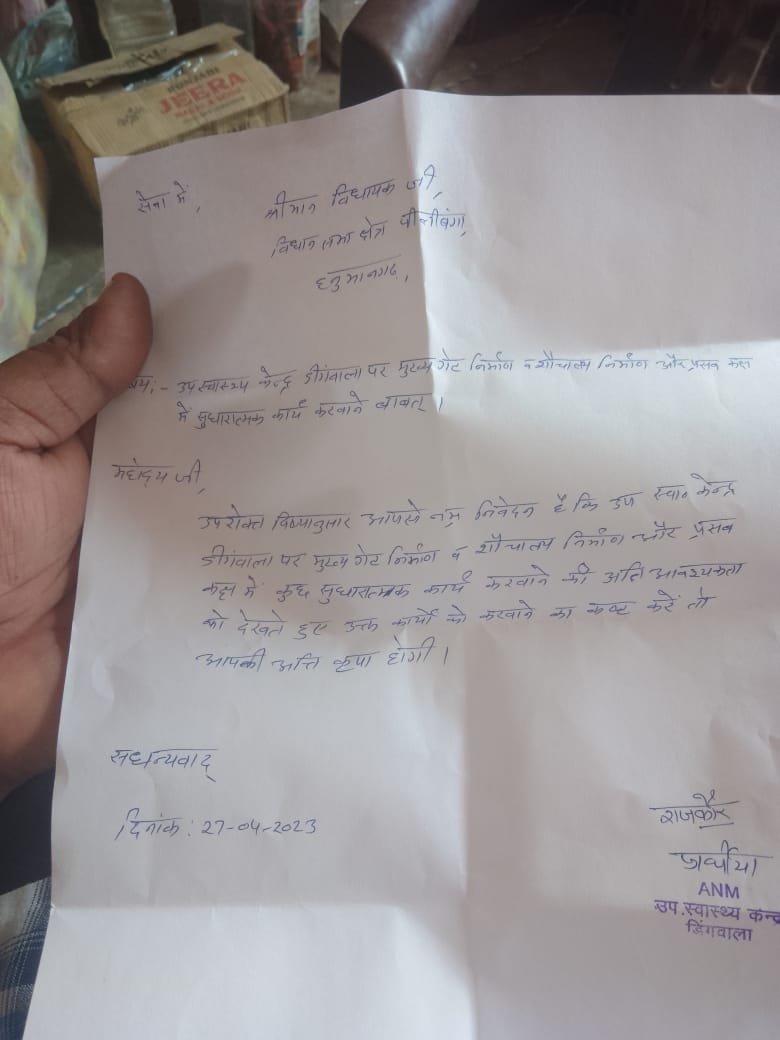 PUNJABI
JEERA
सेवा में,
श्रीमान विधायक जी,
विधानसभा क्षेत्र पीलीबंगा,
हनुमानगढ,
षय:- उपस्वास्थ्य केन्द्र डीगंवाला पर मुख्य गेट निर्माण व शौचालय निर्माण और प्रसव कक्ष
में सुधारात्मक कार्य करवाने बाबत्।
महोदय जी,
उपरोक्त विषयानुसार आपसे नम्र निवेदन है कि उप स्वा० केन्द्र
डीगंवाला पर मुख्य गेट निर्माण व शौचालय निर्माण और प्रसव
कक्ष में कुछ सुधारात्मक कार्य करवाने की अति आवश्यकता
को देखते हुए उक्त कार्यों को करवाने का कष्ट करें तो
आपकी अति कृपा होगी।
सधन्यवाद्
दिनांक: 27-04-2023
राजकौर
प्रार्थीया
ANM
उप.स्वास्थ्य केन्द्र
डिंगवाला